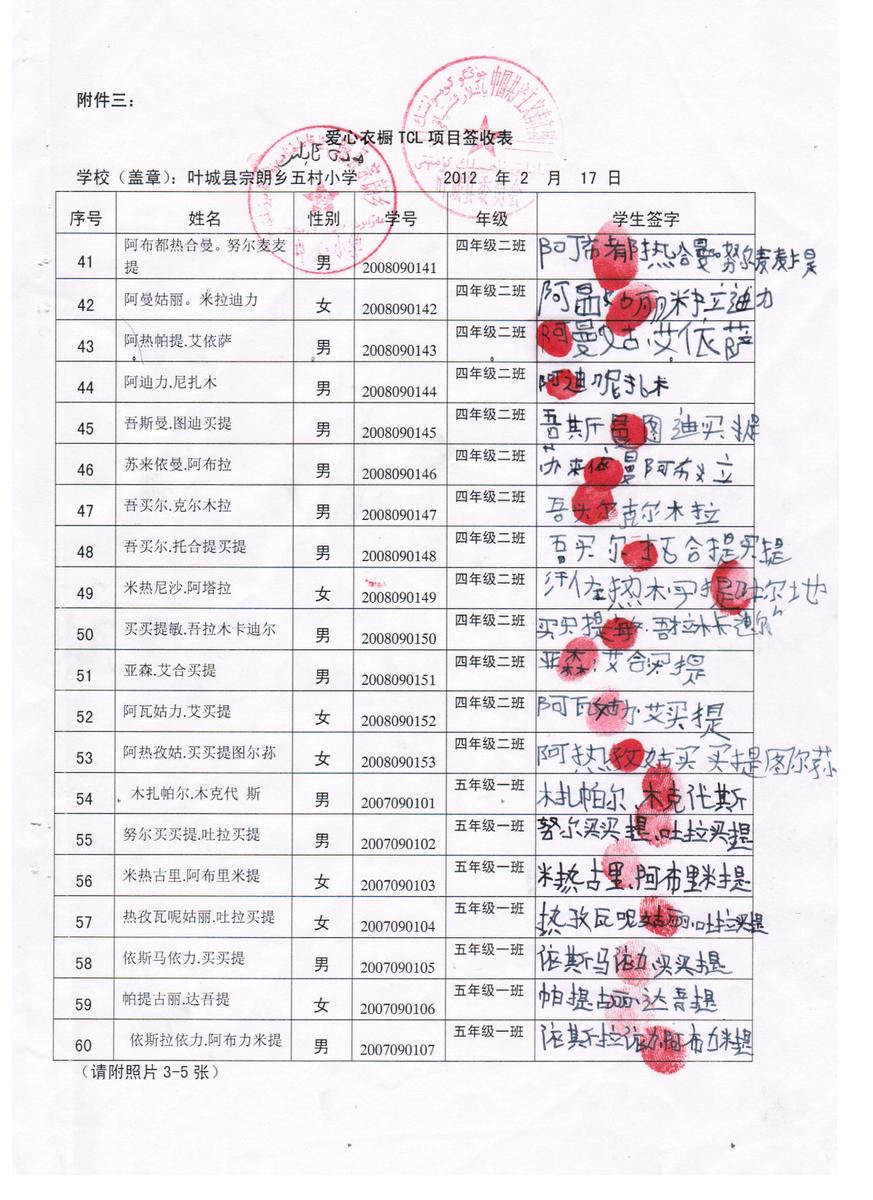 附件三：
爱心衣橱 TCL 项目签收表
学校（盖章）：叶城县宗朗乡五村小学 2012 年 2 月 17 日
序号 姓名 性别 学号 年级 学生签字
41 阿布都热合曼。努尔麦麦提 男 2008090141 四年级二班 阿布都热合曼努尔麦麦提
42 阿曼姑丽。米拉迪力 女 2008090142 四年级二班 阿曼姑丽米拉迪力
43 阿热帕提.艾依萨 男 2008090143 四年级二班 阿曼姑.艾依萨
44 阿迪力.尼扎木 男 2008090144 四年级二班 阿迪呢扎木
45 吾斯曼.图迪买提 男 2008090145 四年级二班 吾斯曼图迪买提
46 苏来依曼.阿布拉 男 2008090146 四年级二班 苏来依曼阿布
47 吾买尔.克尔木拉 男 2008090147 四年级二班 吾买尔克尔木拉
48 吾买尔.托合提买提 男 2008090148 四年级二班 吾买尔托合提买提
49 米热尼沙.阿塔拉 女 2008090149 四年级二班
50 买买提敏.吾拉木卡迪尔 男 2008090150 四年级二班 买买提.吾拉木卡迪尔
51 亚森.艾合买提 男 2008090151 四年级二班 亚森.艾合买提
52 阿瓦姑力.艾买提 女 2008090152 四年级二班 阿瓦姑力.艾买提
53 阿热孜姑.买买提图尔荪 女 2008090153 四年级二班 阿热孜姑买买提图尔荪
54 木扎帕尔.木克代 斯 男 2007090101 五年级一班 木扎帕尔.木克代斯
55 努尔买买提.吐拉买提 男 2007090102 五年级一班 努尔买买提.吐拉买提
56 米热古里.阿布里米提 女 2007090103 五年级一班 米热古里.阿布里米提
57 热孜瓦呢姑丽.吐拉买提 女 2007090104 五年级一班 热孜瓦呢姑丽.吐拉买提
58 依斯马依力.买买提 男 2007090105 五年级一班 依斯马依力.买买提
59 帕提古丽.达吾提 女 2007090106 五年级一班 帕提古丽.达吾提
60 依斯拉依力.阿布力米提 男 2007090107 五年级一班 依斯拉依力.阿布力米提
（请附照片 3-5 张）